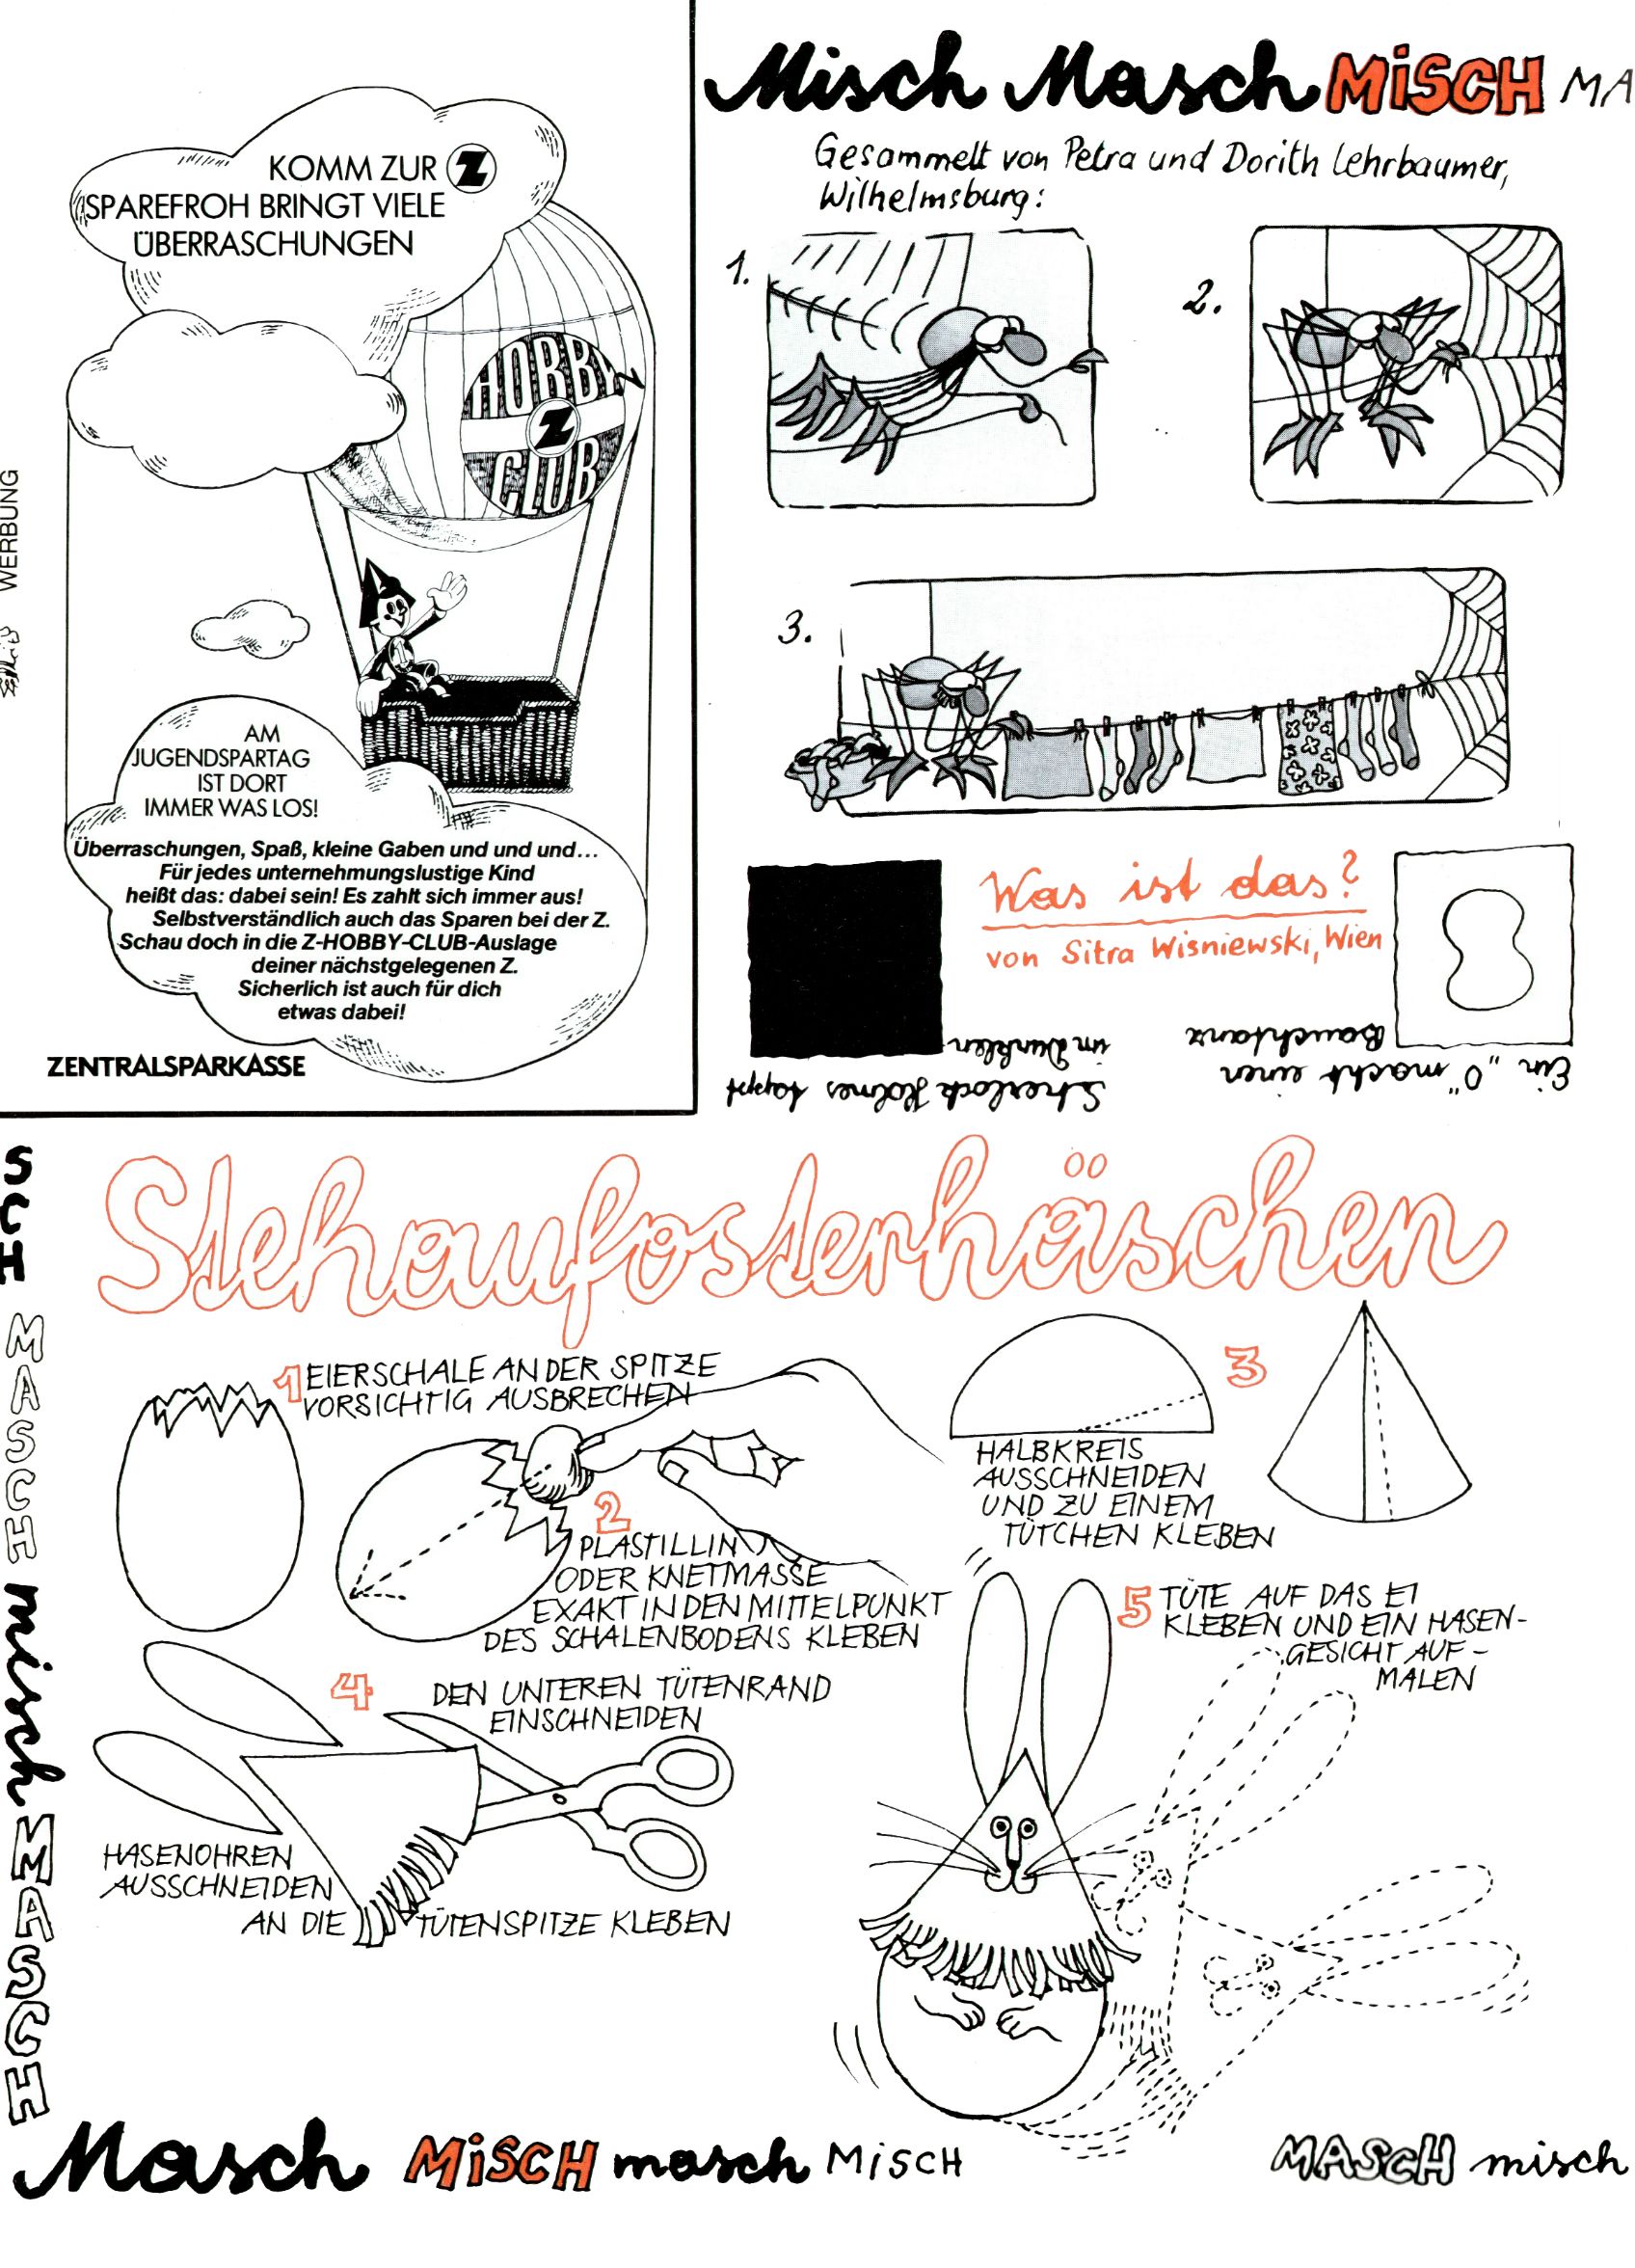 WERBUNG
KOMM ZUR Z
SPAREFROH BRINGT VIELE
ÜBERRASCHUNGEN
HOBBY
Z
CLUB
AM
JUGENDSPARTAG
IST DORT
IMMER WAS LOS!
Überraschungen, Spaß, kleine Gaben und und und...
Für jedes unternehmungslustige Kind
heißt das: dabei sein! Es zahlt sich immer aus!
Selbstverständlich auch das Sparen bei der Z.
Schau doch in die Z-HOBBY-CLUB-Auslage
deiner nächstgelegenen Z.
Sicherlich ist auch für dich
etwas dabei!
ZENTRALSPARKASSE
Misch Masch MiSCH MA
Gesammelt von Petra und Dorith Lehrbaumer,
Wilhelmsburg:
1.
2.
3.
Was ist das?
von Sitra Wisniewski, Wien
Sherlock Holmes tappt
im Dunklen
Ein „O" macht einen
Bauchtanz
Stehaufosterhäschen
1 EIERSCHALE AN DER SPITZE
VORSICHTIG AUSBRECHEN
2
PLASTILLIN
ODER KNETMASSE
EXAKT IN DEN MITTELPUNKT
DES SCHALENBODENS KLEBEN
3
HALBKREIS
AUSSCHNEIDEN
UND ZU EINEM
TÜTCHEN KLEBEN
4 DEN UNTEREN TÜTENRAND
EINSCHNEIDEN
HASENOHREN
AUSSCHNEIDEN
AN DIE TÜTENSPITZE KLEBEN
5 TÜTE AUF DAS EI
KLEBEN UND EIN HASEN-
GESICHT AUF-
MALEN
SCH MASCH misch MASCH
Masch MiSCH masch MiSCH MASCH misch